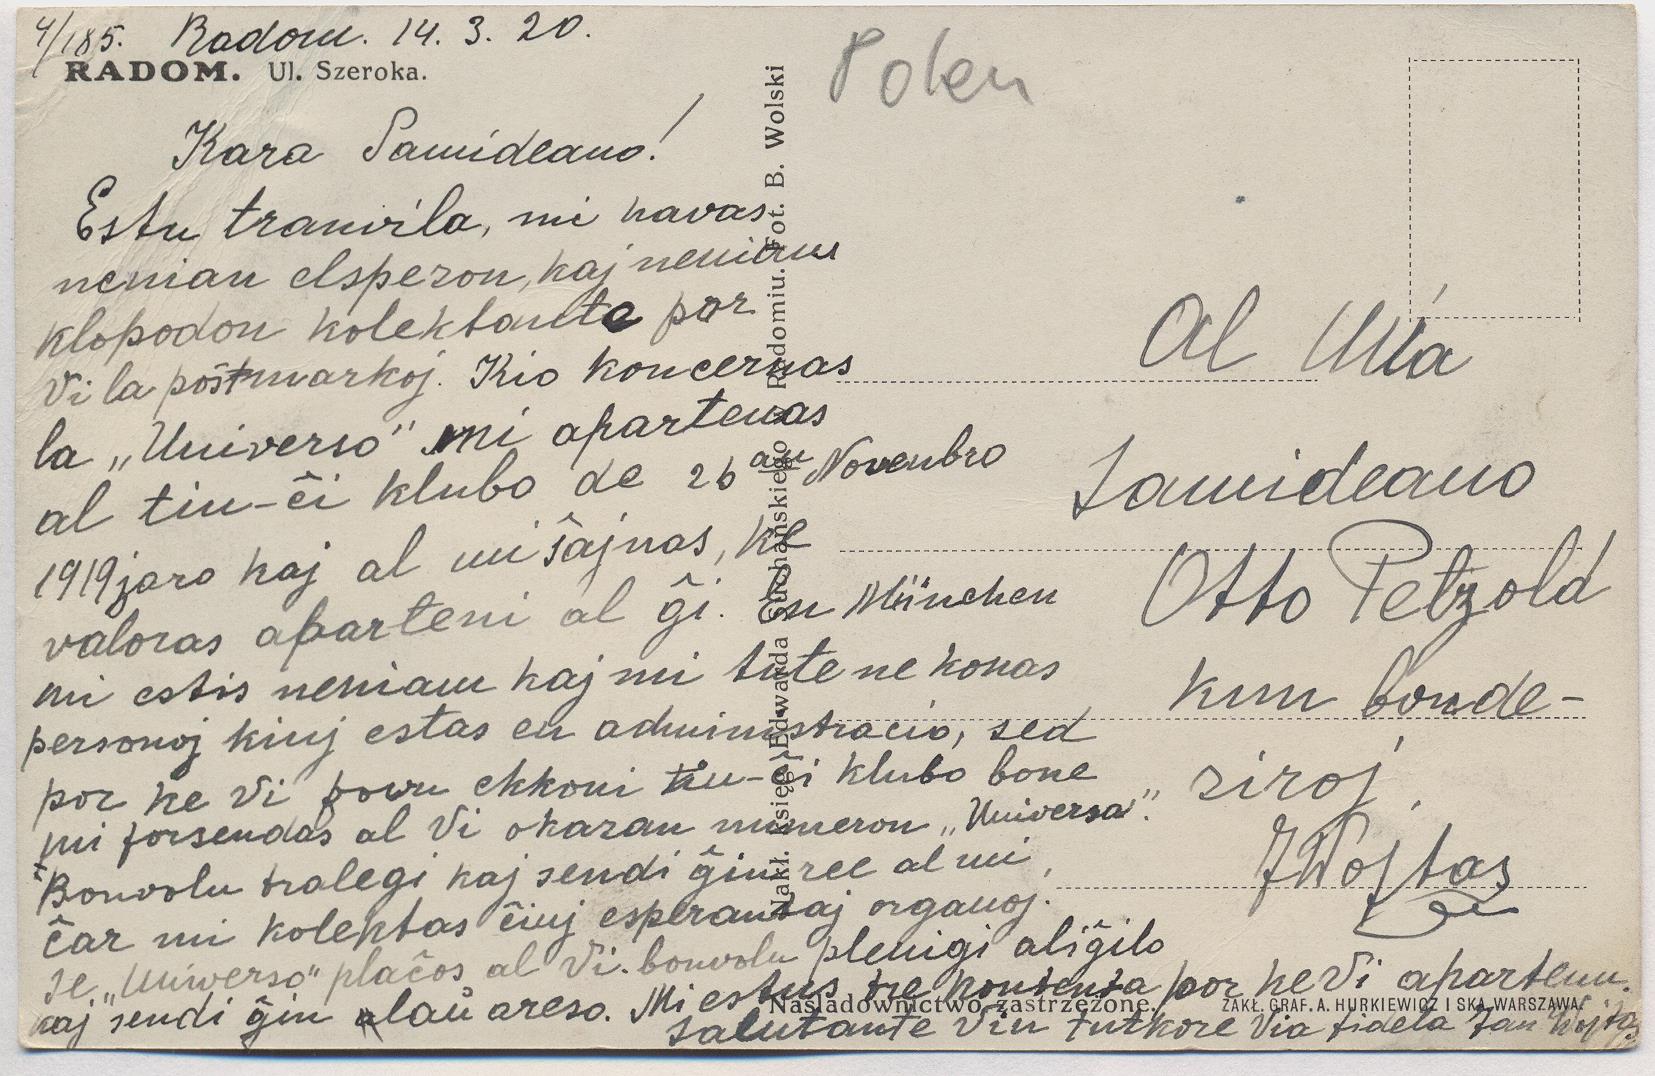 4/185. Radom. 14. 3. 20.
RADOM. Ul. Szeroka.
Kara Samideano!
Estu tranvila, mi havas
nenian elsperon, kaj neniam
klopodon kolektante por
Vi la poŝtmarkoj. Kio koncernas
la „Universo" mi apartenas
al tiu-ĉi klubo de 26an Novembro
1919 jaro kaj al mi ŝajnas, ke
valoras aparteni al ĝi. En München
mi estis neniam kaj mi tute ne konas
personoj kiuj estas en administracio, sed
por ke Vi povu ekkoni tiu-ĉi klubo bone
mi forsendas al Vi okazan numeron „Universo".
Bonvolu tralegi kaj sendi ĝin ree al mi,
ĉar mi kolektas ĉiuj esperantaj organoj.
Se „Universo" plaĉos al Vi bonvolu plenigi aliĝilo
kaj sendi ĝin laŭ areso. Mi estus tre kontenta por ke Vi apartenu.
Salutante Vin tutkore Via fidela Jan Wojtas
Nakł. Księg. Edwarda Suchańskiego w Radomiu. Fot. B. Wolski
Polen
Al Mia
Samideano
Otto Petzold
kun bonde-
ziroj,
JWojtas
Naśladownictwo zastrzeżone.
ZAKŁ. GRAF. A. HURKIEWICZ I SKA, WARSZAWA.